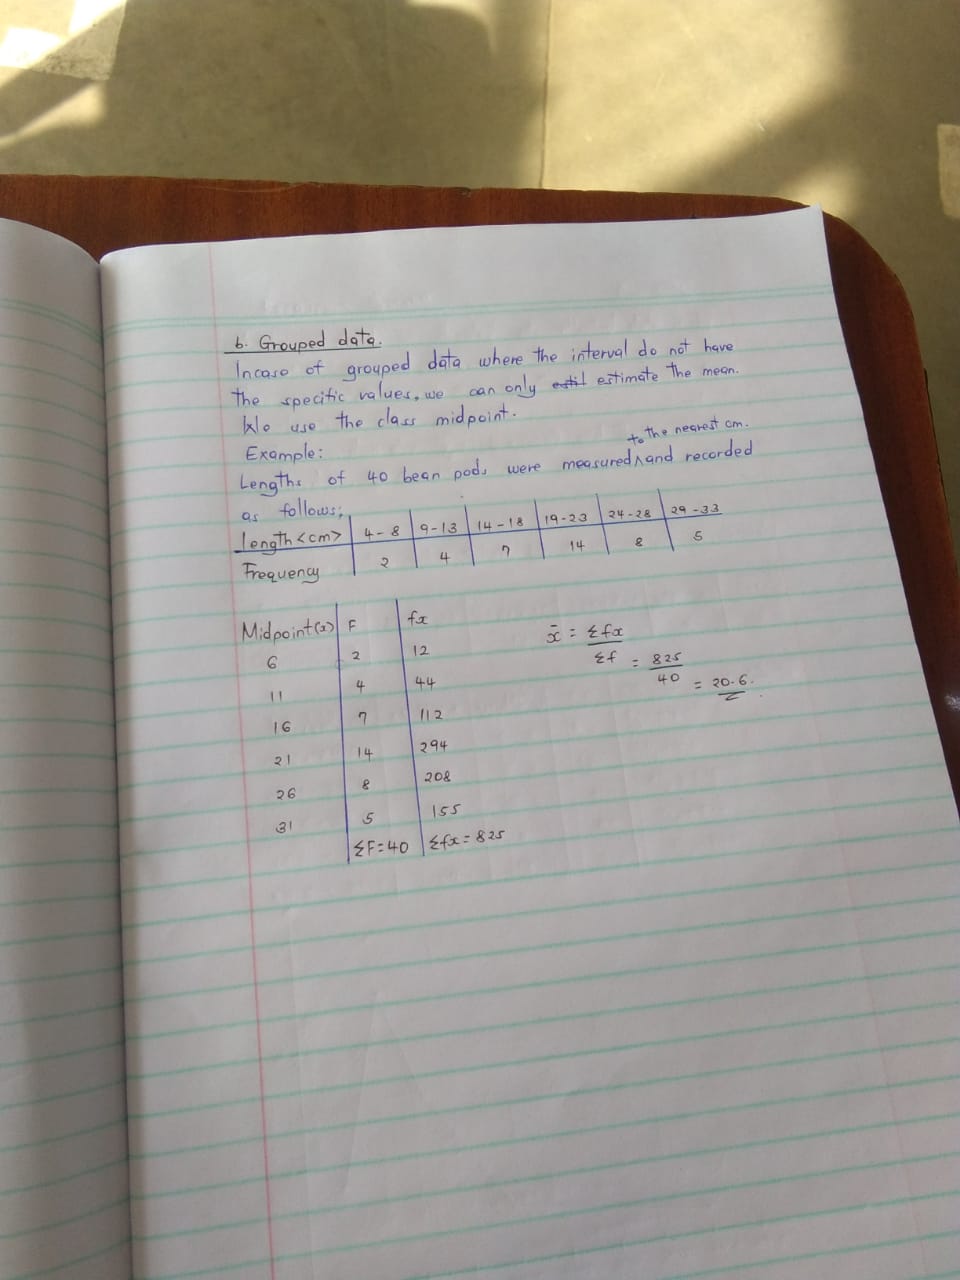 b. Grouped data.
Incase of grouped data where the interval do not have
the specific values, we can only estimate the mean.
We use the class midpoint.
Example:
to the nearest cm.
Lengths of 40 bean pods were measured ∧ and recorded
as follows;
Length <cm> 4-8 9-13 14-18 19-23 24-28 29-33
Frequency 2 4 7 14 8 5
Midpoint(x) F fx
6 2 12
11 4 44
16 7 112
21 14 294
26 8 208
31 5 155
ΣF=40 Σfx=825
x̄ = Σfx
Σf = 825
40 = 20.6.